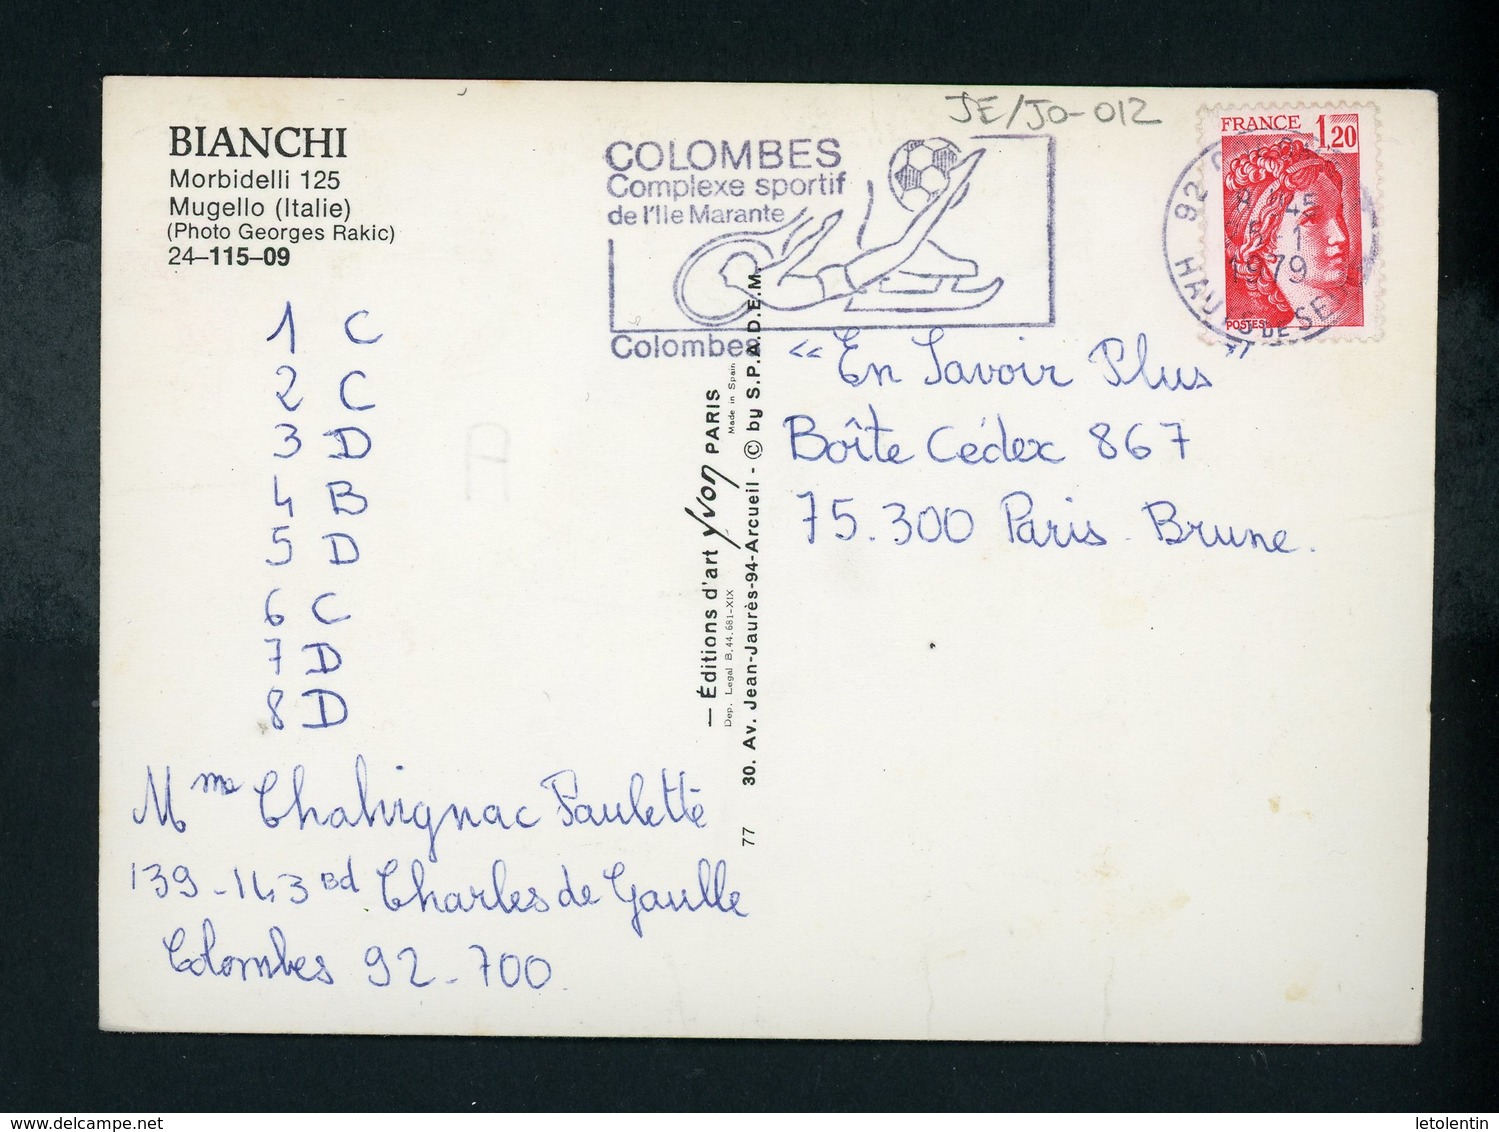 BIANCHI
Morbidelli 125
Mugello (Italie)
(Photo Georges Rakic)
24–115–09
JE/JO-012
COLOMBES
Complexe sportif
de l'Ile Marante
Colombes
FRANCE 1,20
POSTES
92
45
1979
1 C
2 C
3 D
4 B
5 D
6 C
7 D
8 D
A
Mme Chalvignac Paulette
139-143 Bd Charles de Gaulle
Colombes 92-700
— Éditions d'art yvon PARIS
Dep. Legal B. 44.681-XIX
Made in Spain
77 30. Av. Jean-Jaurès-94-Arcueil - © by S.P.A.D.E.M.
« En Savoir Plus »
Boîte Cédex 867
75.300 Paris - Brune.
delcampe.net
letolentin